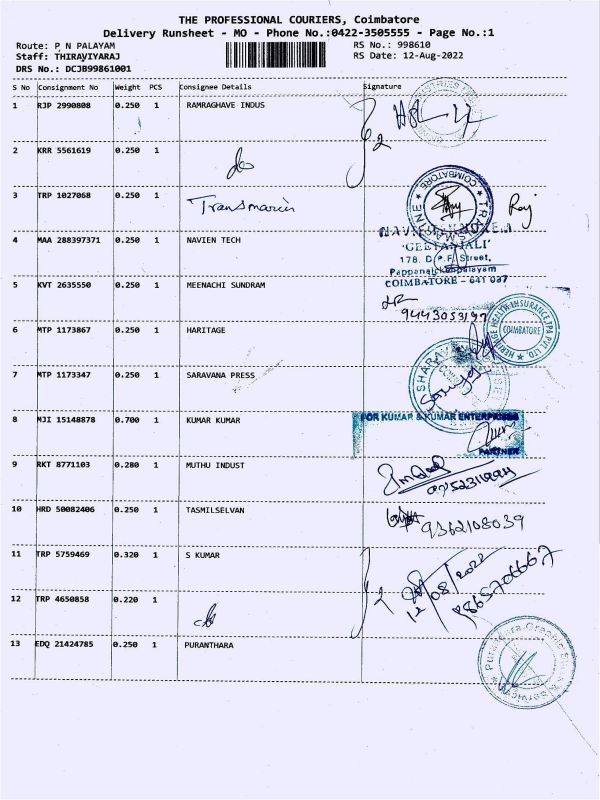 THE PROFESSIONAL COURIERS, Coimbatore
Delivery Runsheet - MO - Phone No.:0422-3505555 - Page No.:1
Route: P N PALAYAM RS No.: 998610
Staff: THIRAVIYARAJ RS Date: 12-Aug-2022
DRS No.: DCJB99861001
S No Consignment No Weight PCS Consignee Details Signature
1 RJP 2990808 0.250 1 RAMRAGHAVE INDUS
2 KRR 5561619 0.250 1
3 TRP 1027068 0.250 1 Transmarin
COIMBATORE
Raj
4 MAA 288397371 0.250 1 NAVIEN TECH
'GEETANJALI'
178, D.P.F. Street,
Pappanaickenpalayam
COIMBATORE - 641 037
5 KVT 2635550 0.250 1 MEENACHI SUNDRAM
9443053197
6 MTP 1173867 0.250 1 HARITAGE
HERITAGE HEALTH INSURANCE TPA PVT. LTD.
COIMBATORE
7 MTP 1173347 0.250 1 SARAVANA PRESS
8 MJI 15148878 0.700 1 KUMAR KUMAR
FOR KUMAR & KUMAR ENTERPRISES
PARTNER
9 RKT 8771103 0.280 1 MUTHU INDUST
10 HRD 50082406 0.250 1 TASMILSELVAN
9362108039
11 TRP 5759469 0.320 1 S KUMAR
12/08/2022
12 TRP 4650858 0.220 1
13 EDQ 21424785 0.250 1 PURANTHARA